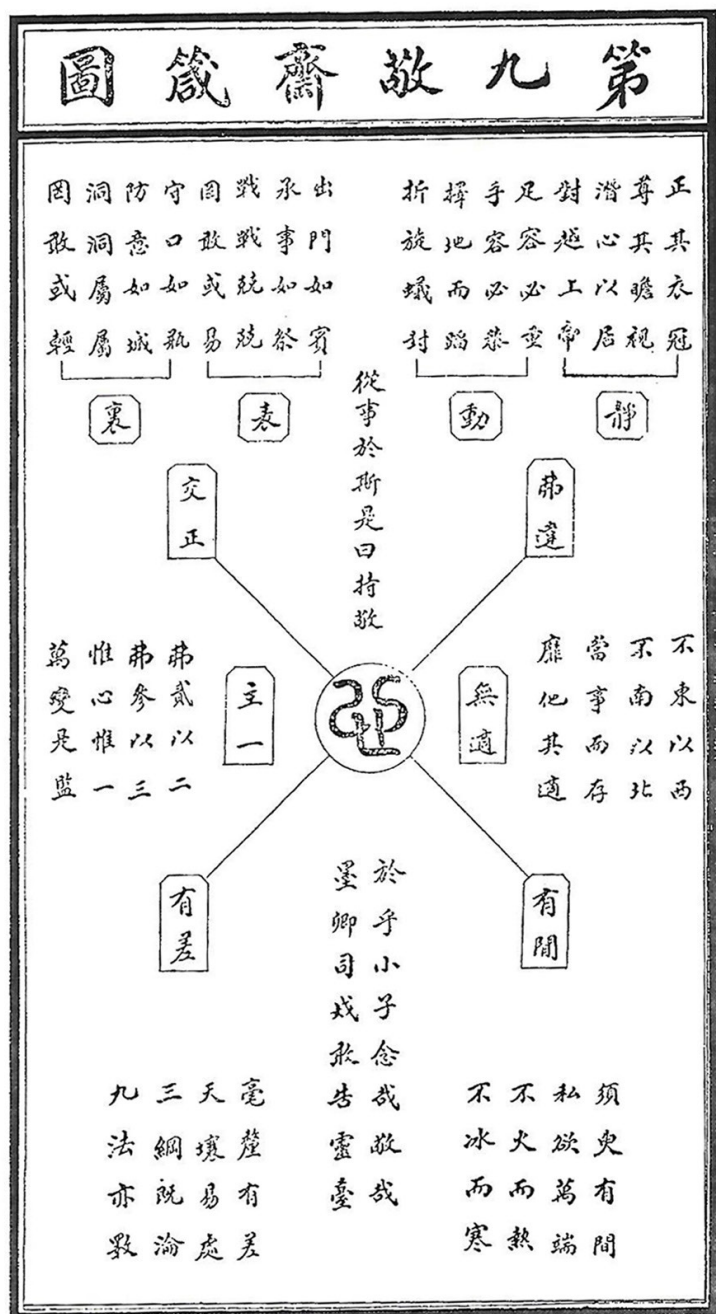 第九敬齋箴圖
正其衣冠
尊其瞻視
潛心以居
對越上帝
足容必重
手容必恭
擇地而蹈
折旋蟻封
出門如賓
承事如祭
戰戰兢兢
罔敢或易
守口如瓶
防意如城
洞洞屬屬
罔敢或輕
靜
動
表
裏
從事於斯是曰持敬
弗違
交正
不東以西
不南以北
當事而存
靡他其適
無適
心
主一
弗貳以二
弗參以三
惟心惟一
萬變是監
有間
有差
於乎小子念哉敬哉
墨卿司戒敢告靈臺
須臾有間
私欲萬端
不火而熱
不冰而寒
毫釐有差
天壤易處
三綱既淪
九法亦斁